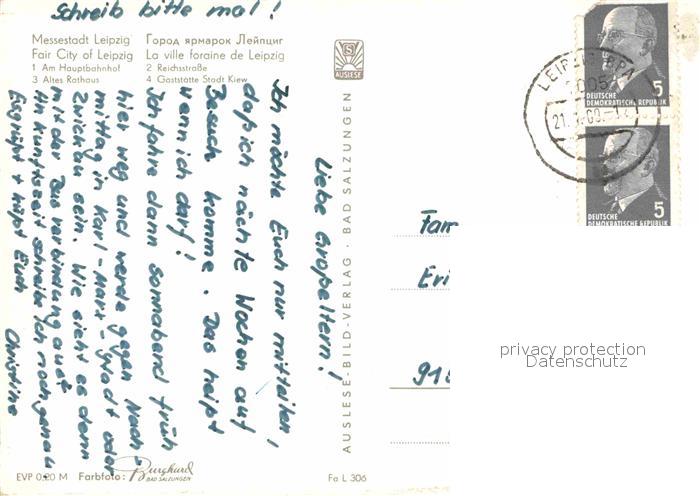 Schreib bitte mal!
Messestadt Leipzig
Fair City of Leipzig
1 Am Hauptbahnhof
3 Altes Rathaus
Город ярмарок Лейпциг
La ville foraine de Leipzig
2 Reichsstraße
4 Gaststätte Stadt Kiew
S
AUSLESE
Liebe Großeltern!
Ich möchte Euch nur mitteilen,
daß ich nächste Wochen auf
Besuch komme. Das heißt
wenn ich darf!
Ich fahre dann sonnabend früh
hier weg und werde gegen Nach-
mittag in Karl-Marx-Stadt oder
Zwickau sein. Wie sieht es denn
mit der Busverbindung aus?
Ankunftszeit schreibe ich noch genau.
Es grüßt + küßt Euch
Christine
AUSLESE-BILD-VERLAG · BAD SALZUNGEN
LEIPZIG BPA
7005
5
DEUTSCHE
DEMOKRATISCHE REPUBLIK
5
DEUTSCHE
DEMOKRATISCHE REPUBLIK
Fam
Eri
privacy protection
Datenschutz
EVP 0,20 M
Farbfoto: Burghard
BAD SALZUNGEN
Fa L 306